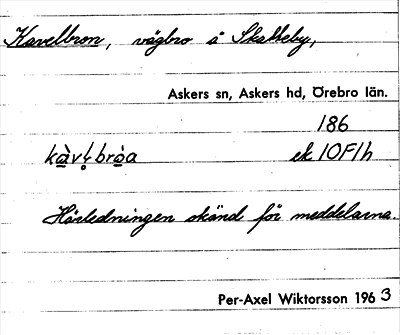 Kavelbron, vägbro å Skalleby,
Askers sn, Askers hd, Örebro län.
186
kàvḷbròa ek 10F1h
Härledningen okänd för meddelarna.
Per-Axel Wiktorsson 1963